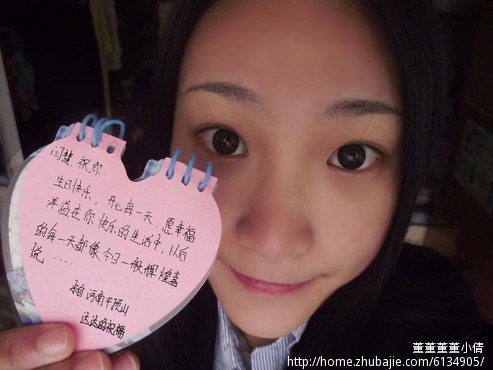 闫慧 祝你:
生日快乐、开心每一天、愿幸福
洋溢在你快乐的生活中,以后
的每一天都像今日一般辉煌喜
悦……
来自河南平顶山
达达的祝福
董董董董小倩
http://home.zhubajie.com/6134905/